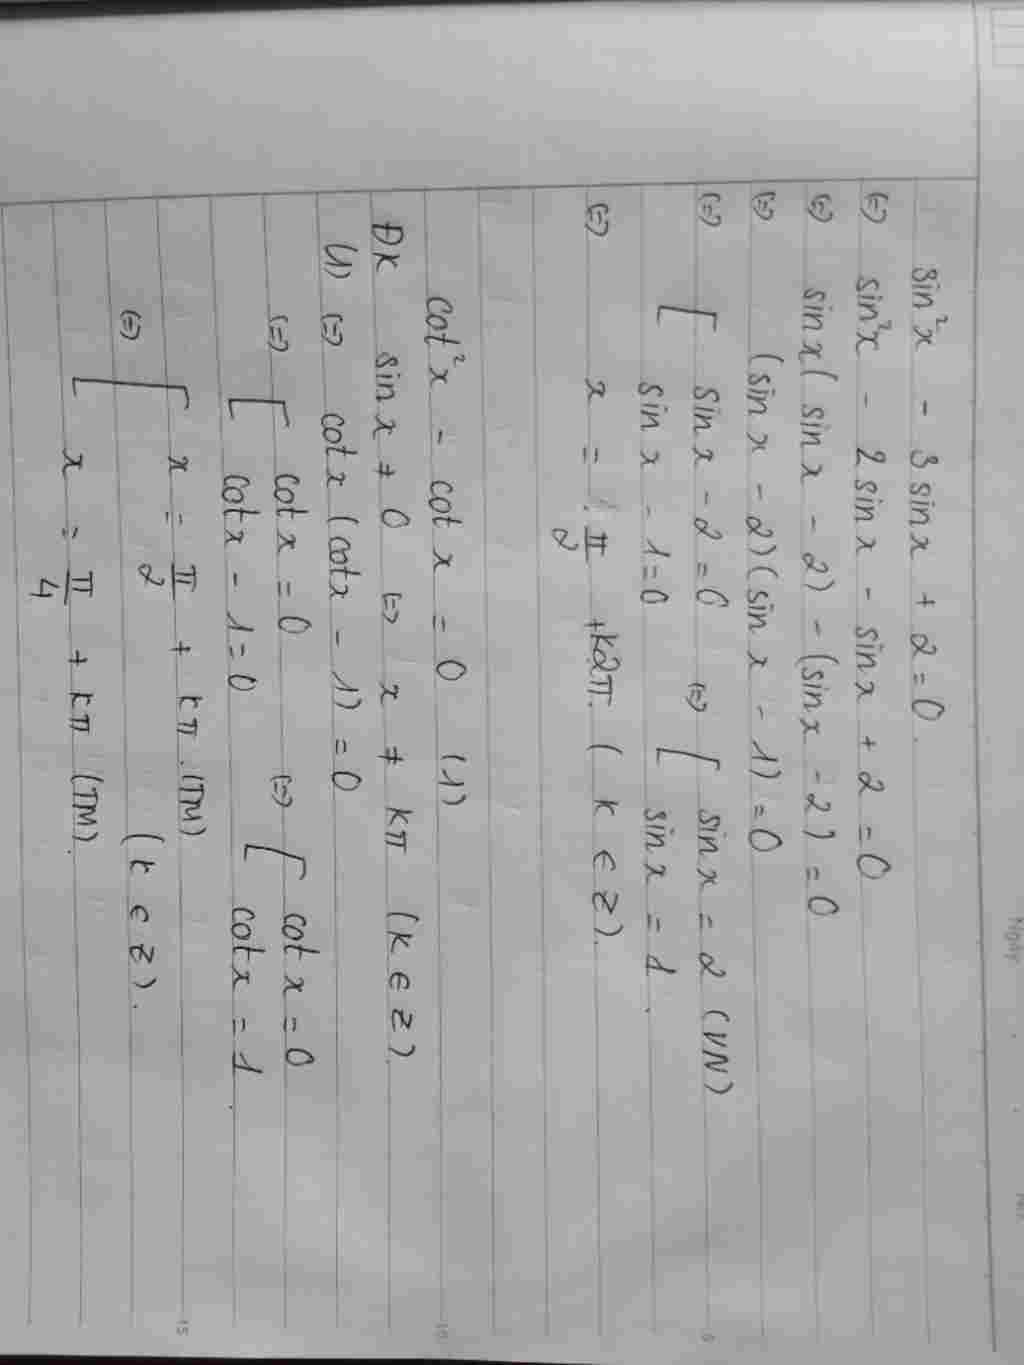 Ngày
sin²x - 3 sinx + 2 = 0.
(=) sin²x - 2 sinx - sinx + 2 = 0
(=) sinx( sinx - 2) - (sinx - 2) = 0
(=) (sinx - 2)(sinx - 1) = 0
(=) [ sinx - 2 = 0 (=) [ sinx = 2 (VN)
sinx - 1 = 0 sinx = 1.
(=) x = π/2 + k2π. ( k ∈ Z).
cot²x - cotx = 0 (1)
ĐK sinx ≠ 0 (=) x ≠ kπ (k ∈ Z).
(1) (=) cotx (cotx - 1) = 0
(=) [ cotx = 0 (=) [ cotx = 0
cotx - 1 = 0 cotx = 1.
(=) [ x = π/2 + kπ. (TM)
(k ∈ Z).
x = π/4 + kπ (TM).
5
10
15